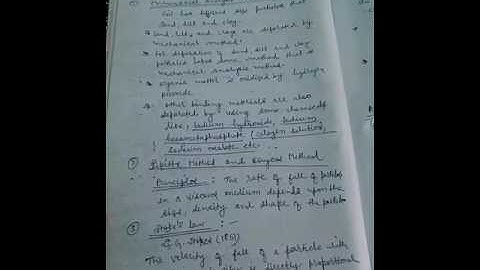 Soil has different size particles that
sand, silt and clay.
* Sand, silt, and clay are separated by
mechanical method.
* For separation of sand, silt and clay
particles some method that is
mechanical analysis method.
* organic matter is oxidized by hydrogen
peroxide.
* Other binding materials are also
separated by using some chemicals
like, Sodium hydroxide, Sodium
hexametaphosphate (calgon solution)
Sodium oxalate etc.
Pipette Method and Bouyoucos Method
Principles : The rate of fall of particles
in a viscous medium depends upon the
size, density and shape of the particles
Stoke's law :-
G. G. Stokes (1851)
The velocity of fall of a particle with
is directly proportional